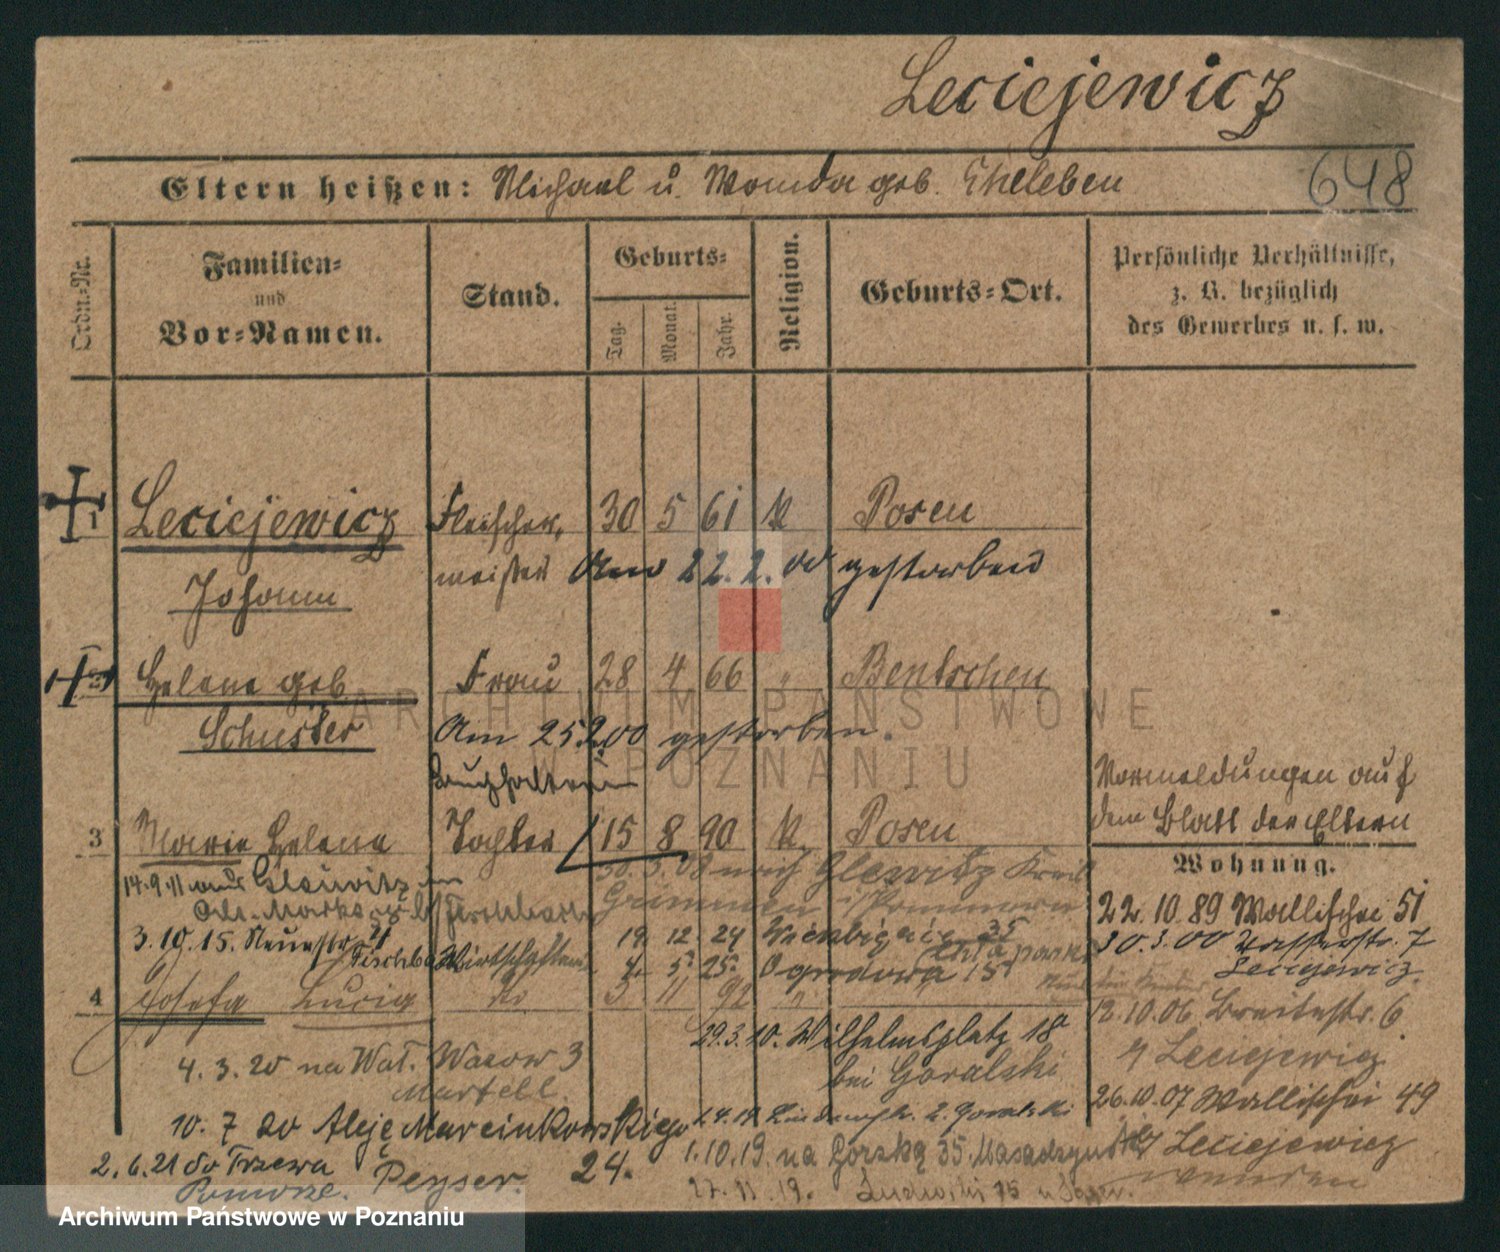 Leciejewicz
648
Eltern heißen: Michael u. Wanda geb. Eheleben
Ordn.-Nr.
Familien-
und
Vor-Namen.
Stand.
Geburts-
Tag.
Monat.
Jahr.
Religion.
Geburts-Ort.
Persönliche Verhältnisse,
z. B. bezüglich
des Gewerbes u. s. w.
1 Leciejewicz Fleischer- 30 5 61 k Posen
Johann meister Am 22.2.00 gestorben
2 Helene geb. Frau 28 4 66 " Bentschen
Schuster Am 25.2.00 gestorben.
Buchhalterin
Vormeldungen auf
dem Blatt der Eltern
3 Marie Helene Tochter 15 8 90 k Posen
Wohnung.
14.9.11 aus Gleiwitz
30.3.08 nach Glewitz Kreis
Grimmen i/Pommern
22.10.89 Wallischei 51
3.10.15. Neuestr.
Fischbach Wirtschafterin
19. 12. 24
4. 5. 25. Ogrodowa 15
30.3.00 Wasserstr. 7
Leciejewicz
4 Josefa Lucia do 3 11 92 "
12.10.06 Breitestr. 6
29.3.10. Wilhelmsplatz 18
bei Goralski
b/ Leciejewicz
4.3.20 na Wał. Wazów 3
Martell.
26.10.07 Wallischei 49
b/ Leciejewicz
10.7 do Aleje Marcinkowskiego
24.
Peyser.
2.6.21 do Trzewa
Pomorze.
1.10.19. na Górską 35.
27.11.19.
ARCHIWUM PAŃSTWOWE
W POZNANIU
Archiwum Państwowe w Poznaniu